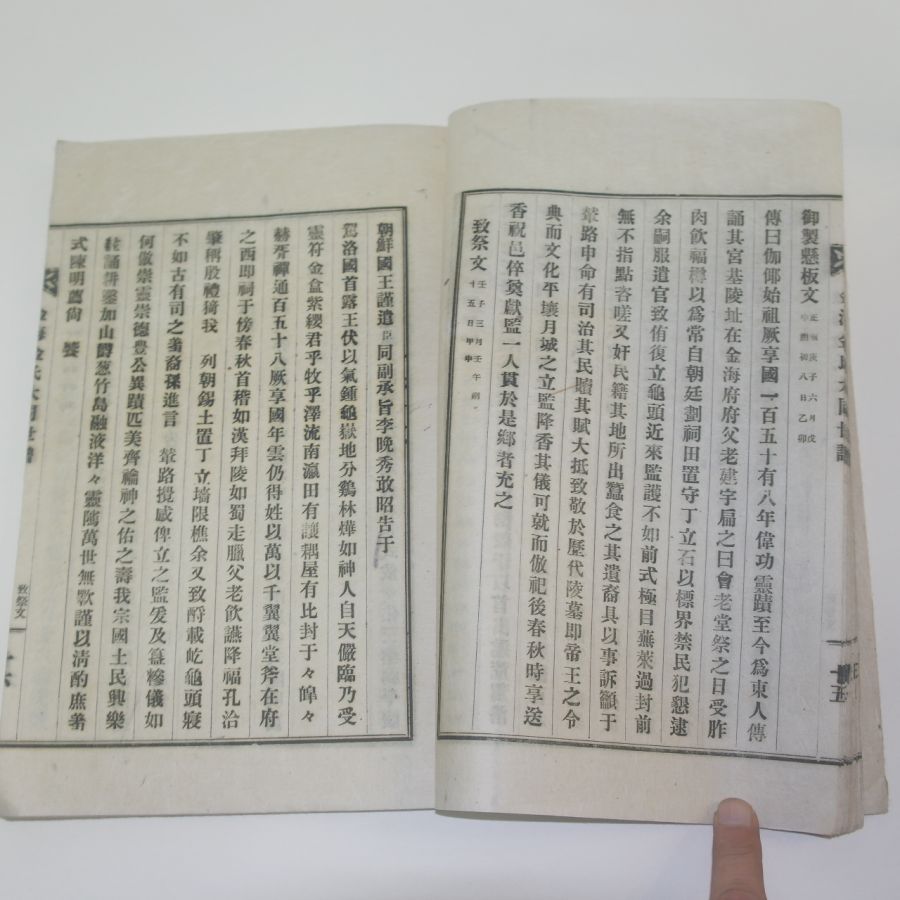 御製懸板文 正宗庚子六月戊申朔初八日乙卯
傳曰伽倻始祖厥享國一百五十有八年偉功靈蹟至今爲東人傳
誦其宮基陵址在金海府府父老建宇扁之曰會老堂祭之日受胙
肉飮福樽以爲常自朝廷劃祠田置守丁立石以標界禁民犯懇逮
余嗣服遣官致侑復立龜頭近來監護不如前式極目蕪萊過封前
無不指點咨嗟又奸民籍其地所出蠶食之其遺裔具以事訴籲于
輦路申命有司治其民贖其賦大抵致敬於歷代陵墓即帝王之令
典而文化平壤月城之立監降香其儀可就而倣祀後春秋時享送
香祝邑倅奠獻監一人貫於是鄕者充之
致祭文 壬子三月壬午朔十五日甲申
十五
朝鮮國王謹遣臣同副承旨李晩秀敢昭告于
駕洛國首露王伏以氣鍾龜嶽地分鷄林燁如神人自天儼臨乃受
靈符金盒紫纓君乎牧乎澤流南瀛田有讓耦屋有比封于々皞々
赫胥禪通百五十八厥享國年雲仍得姓以萬以千翼翼堂斧在府
之西即祠于傍春秋首稽如漢拜陵如蜀走臘父老飮讌降福孔洽
肇稱殷禮猗我 列朝錫土置丁立墻限樵余又致酹載屹龜頭寢
不如古有司之羞裔孫進言 輦路攪感俾立之監爰及籩糝儀如
何倣崇靈崇德豊公異蹟匹美齊綸神之佑之壽我宗國土民興樂
誦 加山欝葱竹島融液洋々靈隲萬世無斁謹以淸酌庶羞
式陳明薦尙 饗
致祭文